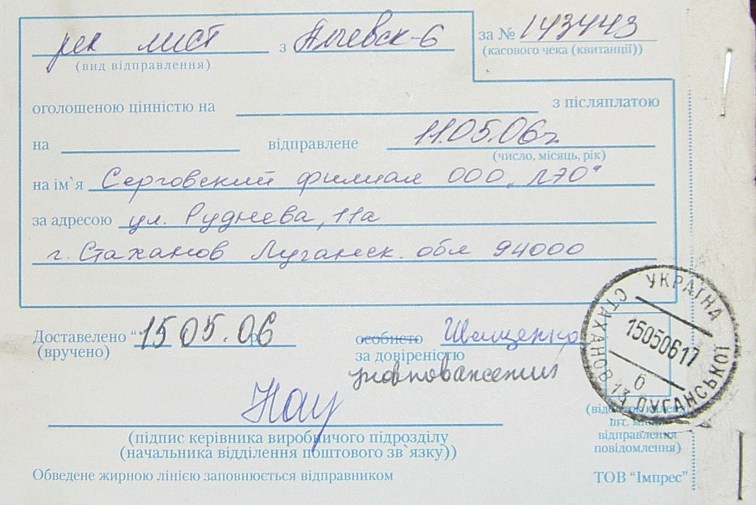 рек лист з Алчевск-6 за № 143443
(вид відправлення) (касового чека (квитанції))
оголошеною цінністю на з післяплатою
на відправлене 11.05.06г
(число, місяць, рік)
на ім`я Серговский филиал ООО „ЛЭО"
за адресою ул. Руднева, 11а
г. Стаханов Луганск. обл 94000
Доставлено “15 05.06 особисто Иващенко
(вручено) за довіреністю
уповноважений
(підпис керівника виробничого підрозділу
(начальника відділення поштового зв`язку))
відправлення
повідомлення)
Обведене жирною лінією заповнюється відправником ТОВ “Імпрес”
УКРАЇНА
150506 17
б
СТАХАНОВ 13 ЛУГАНСЬКОЇ